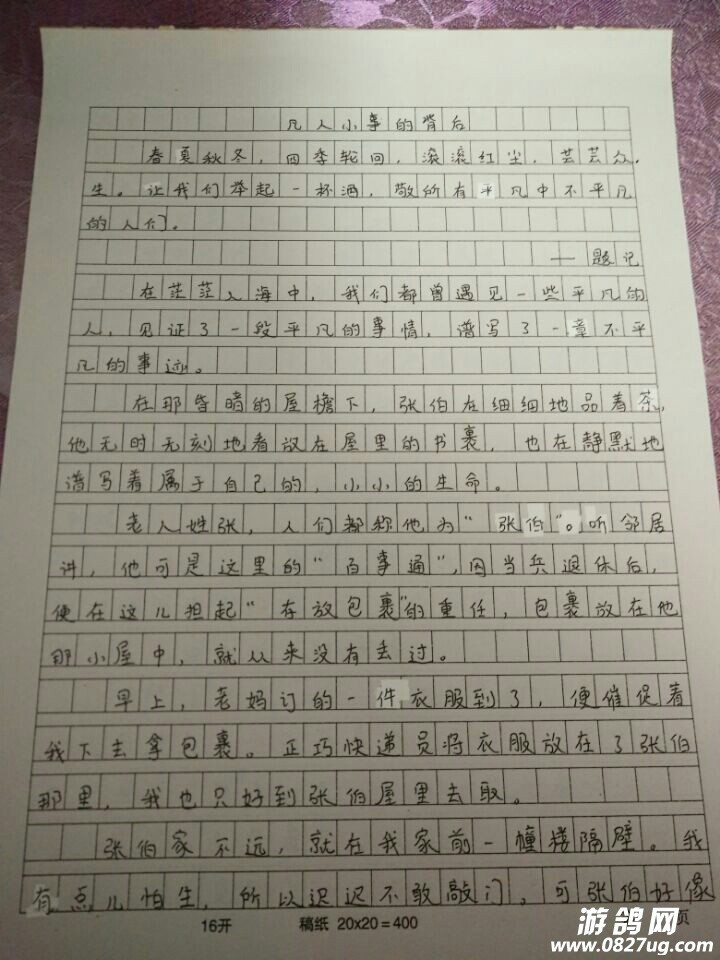 凡人小事的背后
春夏秋冬，四季轮回，滚滚红尘，芸芸众
生。让我们举起一杯酒，敬所有平凡中不平凡
的人们。
——题记
在茫茫人海中，我们都曾遇见一些平凡的
人，见证了一段平凡的事情，谱写了一章不平
凡的事迹。
在那昏暗的屋檐下，张伯在细细地品着茶，
他无时无刻地看放在屋里的书裹，也在静默地
谱写着属于自己的，小小的生命。
老人姓张，人们都称他为“张伯”。听邻居
讲，他可是这里的“百事通”，因当兵退休后，
便在这儿担起“存放包裹”的重任，包裹放在他
那小屋中，就从来没有丢过。
早上，老妈订的一件衣服到了，便催促着
我下去拿包裹。正巧快递员将衣服放在了张伯
那里，我也只好到张伯屋里去取。
张伯家不远，就在我家前一幢楼隔壁。我
有点儿怕生，所以迟迟不敢敲门，可张伯好像
16开 稿纸 20x20=400 页
游鸽网
www.0827ug.com